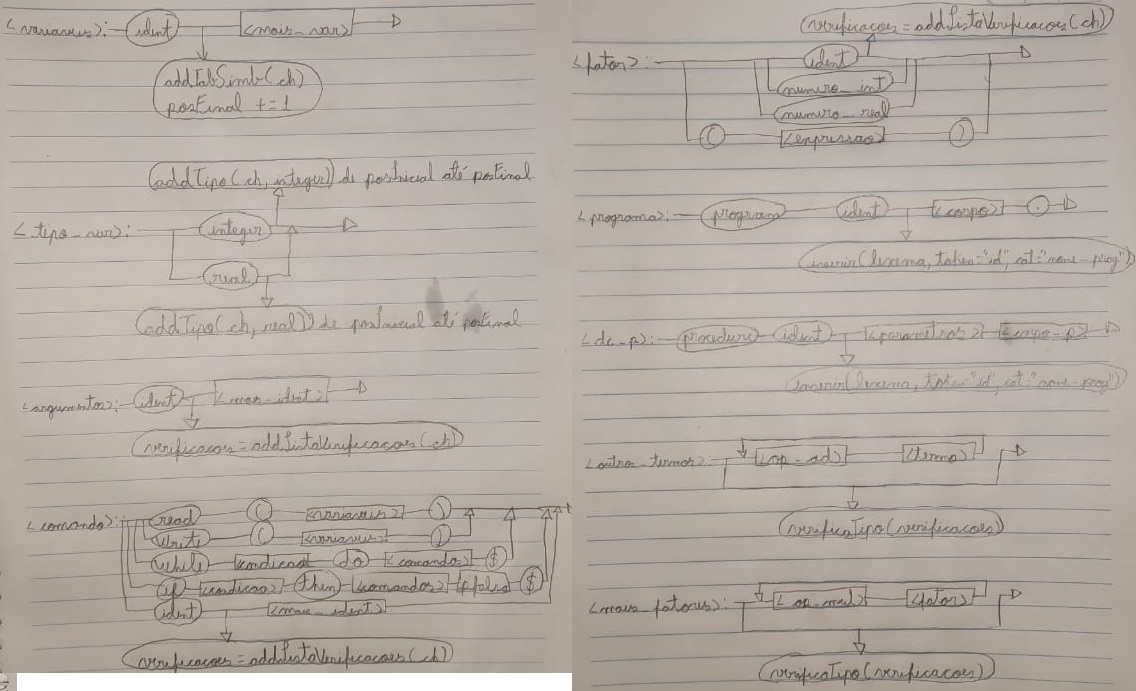 <variaveis>: ident <mais_var>
addTabSimb(ch)
posFinal += 1
addTipo(ch, integer) de posInicial até posFinal
<tipo_var>: integer
real
addTipo(ch, real) de posInicial até posFinal
<argumentos>: ident <mais_ident>
verificacoes = addListaVerificacoes(ch)
<comando>: read ( <variaveis> )
write ( <variaveis> )
while <condicao> do <comandos> $
if <condicao> then <comandos> <pfalsa> $
ident <mais_ident>
verificacoes = addListaVerificacoes(ch)
verificacoes = addListaVerificacoes(ch)
<fator>: ident
numero_int
numero_real
( <expressao> )
<programa>: program ident <corpo> .
inserir(lexema, token="id", cat="nome-prog")
<dc_p>: procedure ident <parametros> <corpo_p>
inserir(lexema, token="id", cat="nome-prog")
<outros_termos>: <op_ad> <termo>
verificaTipo(verificacoes)
<mais_fatores>: <op_mul> <fator>
verificaTipo(verificacoes)